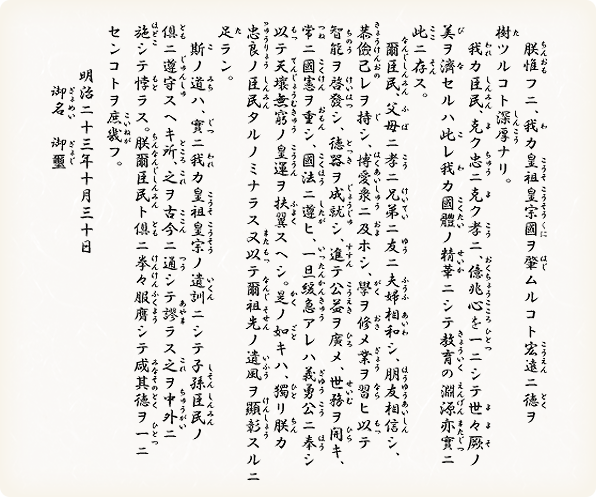 朕惟フニ、我カ皇祖皇宗國ヲ肇ムルコト宏遠ニ徳ヲ
樹ツルコト深厚ナリ。
我カ臣民、克ク忠ニ克ク孝ニ、億兆心を一ニシテ世々厥ノ
美ヲ濟セルハ此レ我カ國體ノ精華ニシテ教育の淵源亦實ニ
此ニ存ス。
爾臣民、父母ニ孝ニ兄弟ニ友ニ夫婦相和シ、朋友相信シ、
恭儉己レヲ持シ、博愛衆ニ及ホシ、學ヲ修メ業ヲ習ヒ以テ
智能ヲ啓發シ、徳器ヲ成就シ、進テ公益ヲ廣メ、世務ヲ開キ、
常ニ國憲ヲ重シ、國法ニ遵ヒ、一旦緩急アレハ義勇公ニ奉シ
以テ天壤無窮ノ皇運ヲ扶翼スヘシ。是ノ如キハ、獨リ朕カ
忠良ノ臣民タルノミナラス又以テ爾祖先ノ遺風ヲ顯彰スルニ
足ラン。
斯ノ道ハ、實ニ我カ皇祖皇宗ノ遺訓ニシテ子孫臣民ノ
倶ニ遵守スヘキ所、之ヲ古今ニ通シテ謬ラス之ヲ中外ニ
施シテ悖ラス。朕爾臣民ト倶ニ拳々服膺シテ咸其徳ヲ一ニ
センコトヲ庶幾フ。
明治二十三年十月三十日
御名 御璽